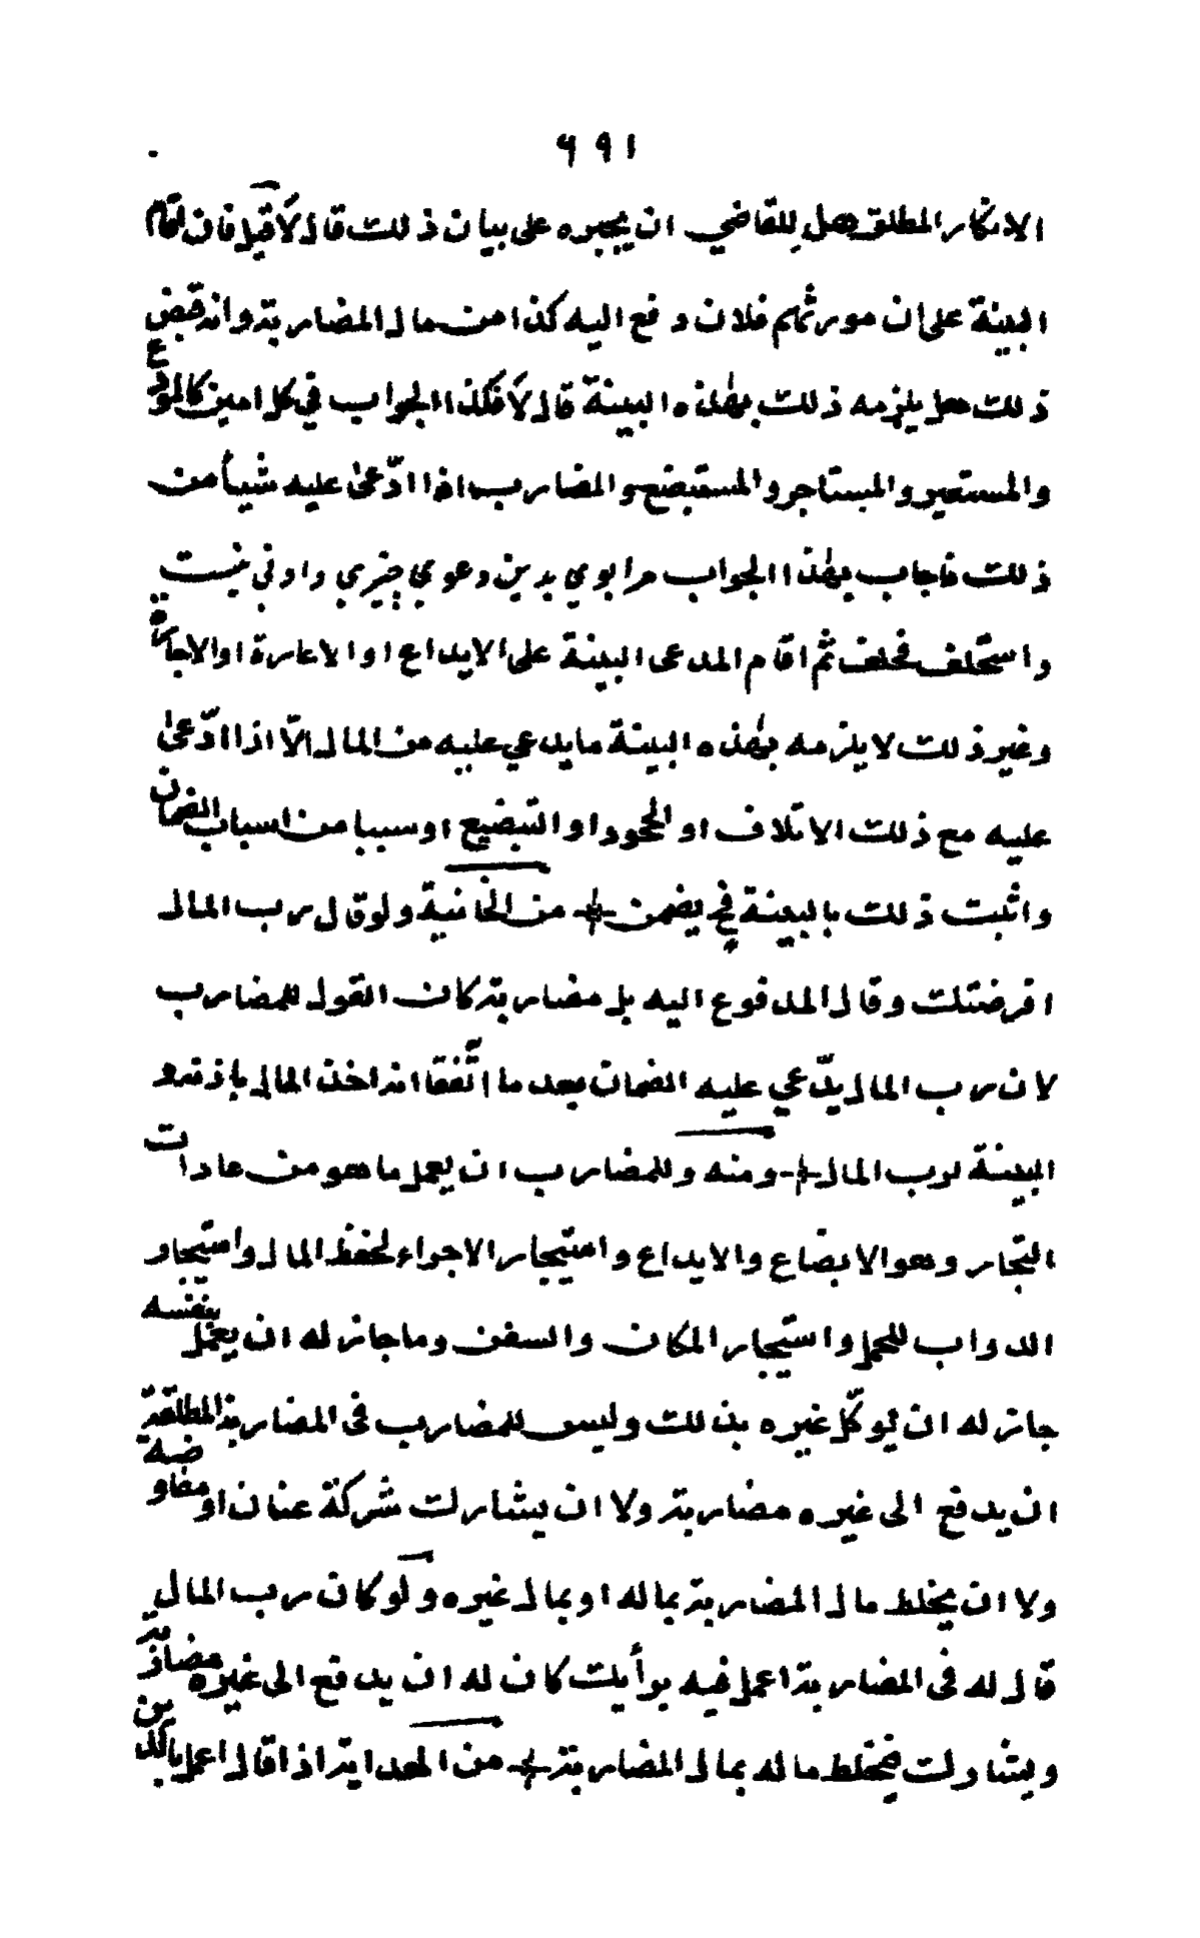 ٦٩١
الانكار المطلق هل للقاضي ان يجبره على بيان ذلك قال لا قيل فان اقام
البينة على ان مورثهم فلان دفع اليه كذا من مال المضاربة وانه قبض
ذلك هل يلزمه ذلك بهذه البينة قال لا فكذا الجواب في كل امين كالمودع
والمستعير والمستاجر والمستبضع والمضارب اذا ادّعى عليه شيأ من
ذلك فاجاب بهذا الجواب مرا بوي بدين دعوي چيزي دادنى نيست
واستحلف فحلف ثم اقام المدعى البينة على الايداع او الاعارة او الاجارة
وغير ذلك لا يلزمه بهذه البينة ما يدعي عليه من المال الّا اذا ادّعى
عليه مع ذلك الاتلاف او الجحود او التضييع او سببا من اسباب الضمان
واثبت ذلك بالبينة فح يضمن من الخانية ولو قال رب المال
اقرضتك وقال المدفوع اليه بل مضاربة كان القول للمضارب
لان رب المال يدّعي عليه الضمان بعد ما اتّفقا انه اخذ المال باذنه و
البينة لرب المال ومنه وللمضارب ان يعمل ما هو من عادات
التجار وهو الابضاع والايداع واستيجار الاجراء لحفظ المال واستيجار
الدواب للحمل واستيجار المكان والسفن وما جاز له ان يعمل بنفسه
جاز له ان يوكّل غيره بذلك وليس للمضارب فى المضاربة المطلقة
ان يدفع الى غيره مضاربة ولا ان يشارك شركة عنان او مفاوضة
ولا ان يخلط مال المضاربة بماله او بمال غيره ولو كان رب المال
قال له فى المضاربة اعمل فيه برأيك كان له ان يدفع الى غيره مضاربة
ويشارك فيخلط ماله بمال المضاربة من الهداية اذا قال اعمل بالدين